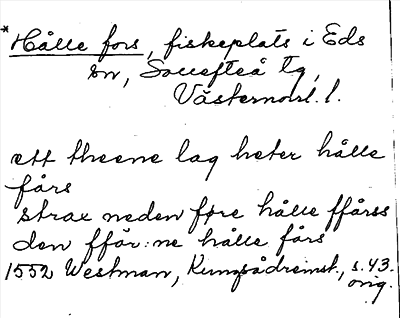 * Hålle fors, fiskeplats i Eds
sn, Sollefteå tg,
Västernorrl. l.
ett theene lag heter hålle
fårs
strax neden före hålle ffårss
den ffår:ne hålle fårs
1552 Westman, Kungsådreinst., s. 43.
orig.